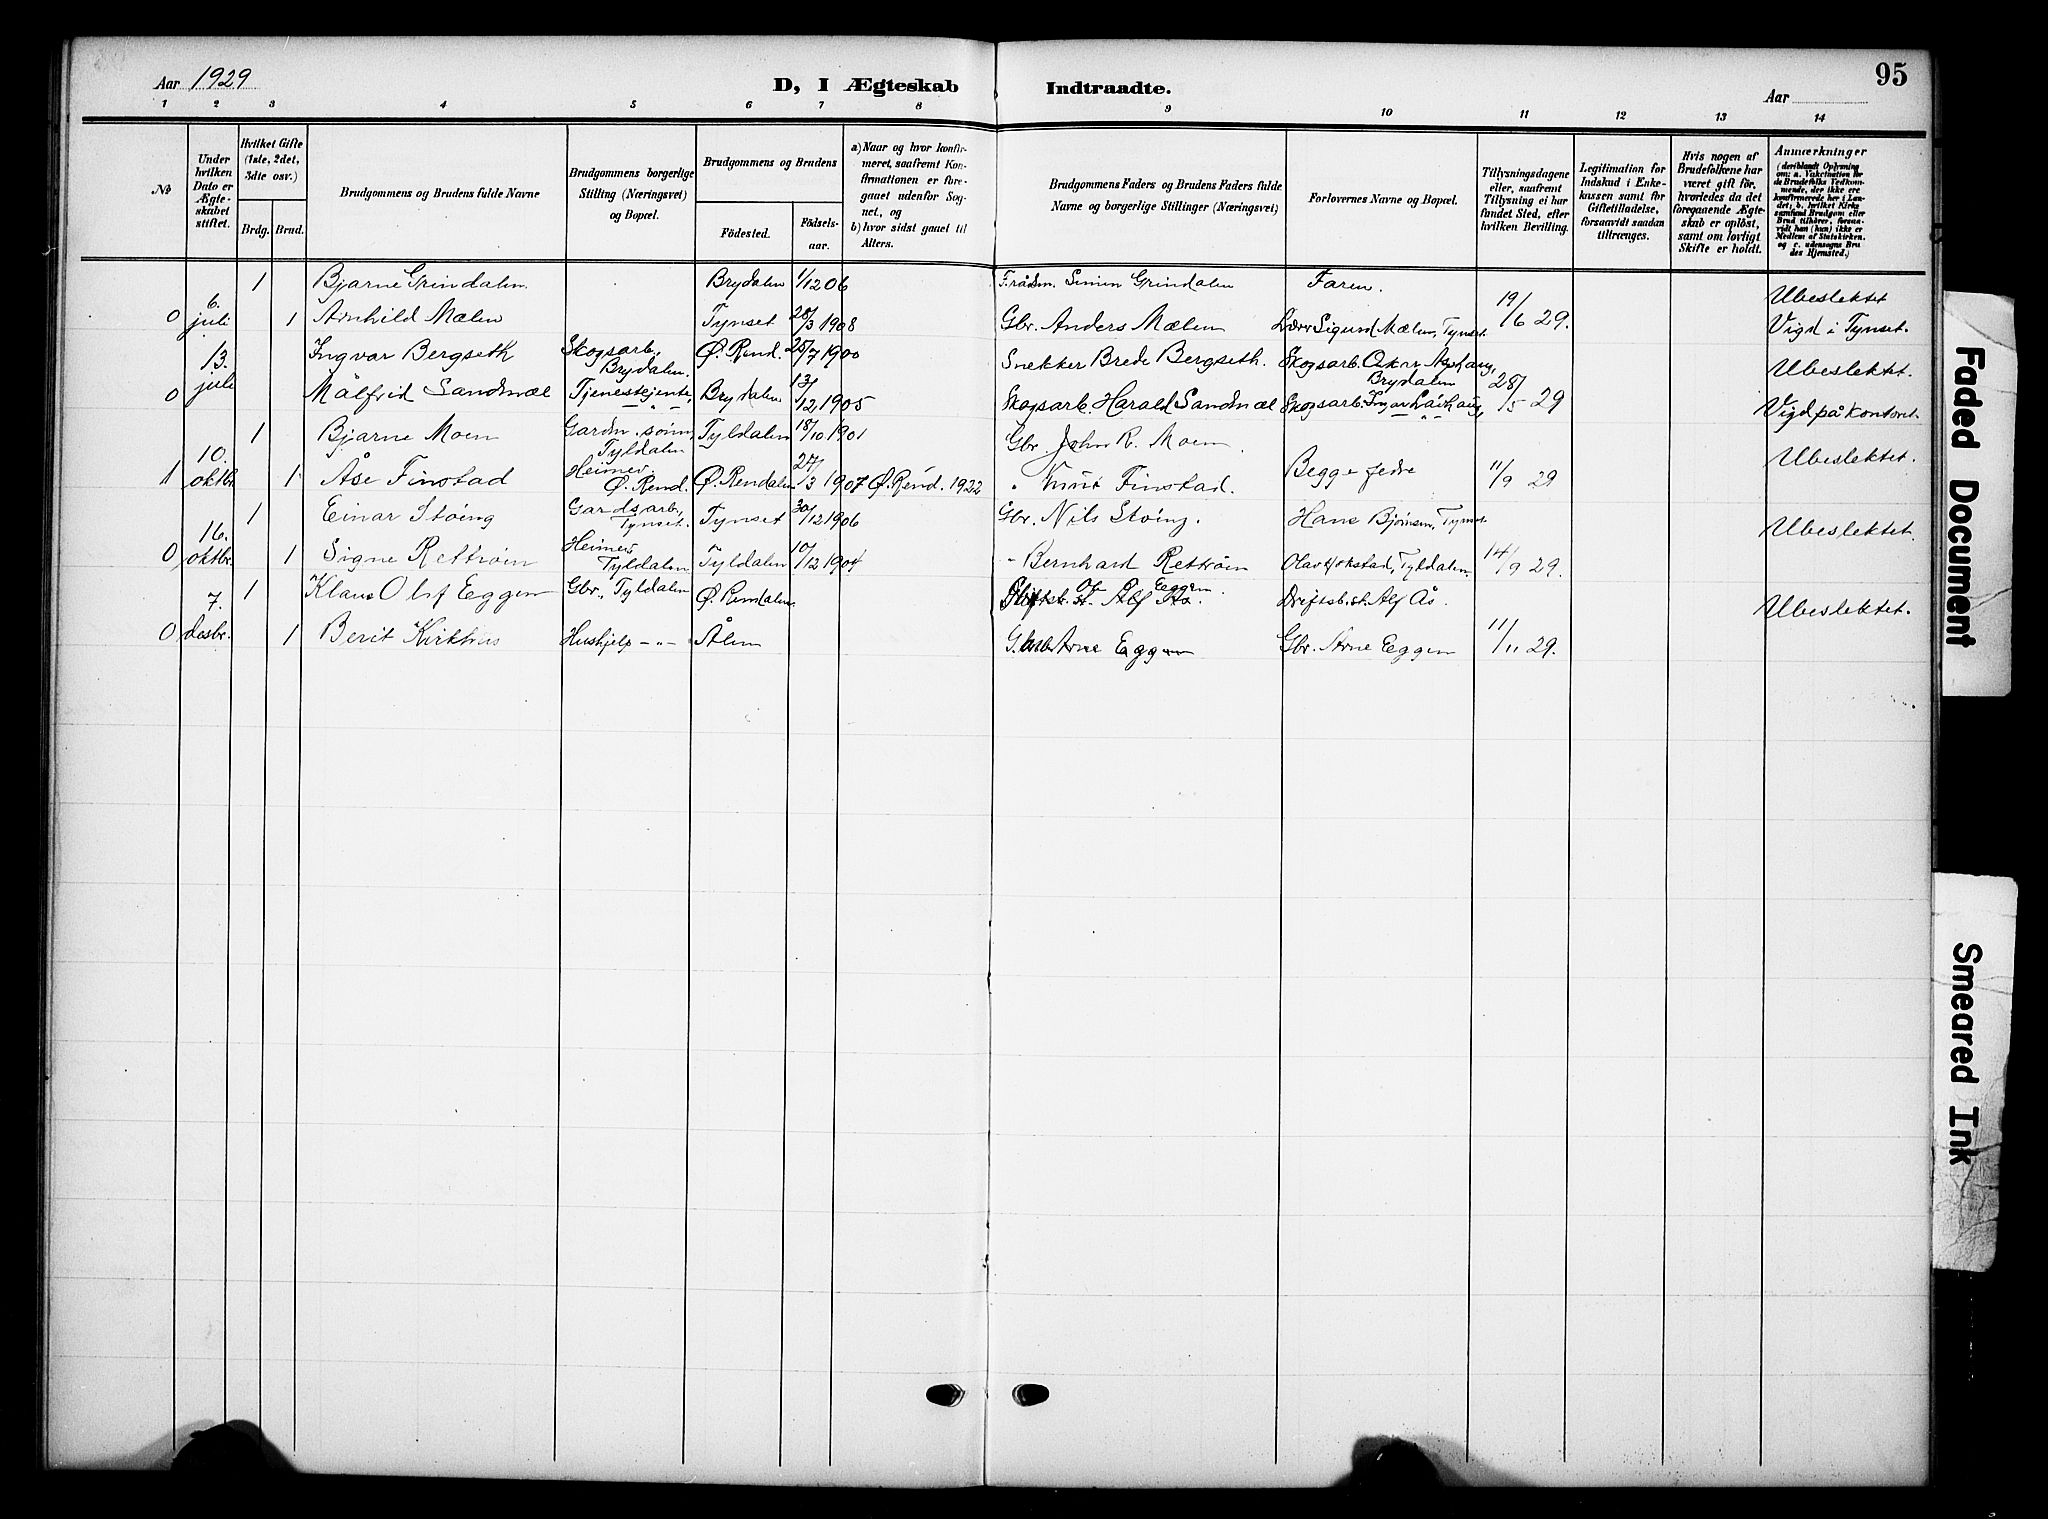 Aar 1929
D, I Ægteskab Indtraadte.
95
Aar
1 2 3 4 5 6 7 8 9 10 11 12 13 14
No
Under hvilken Dato er Ægteskabet stiftet.
Hvilket Gifte (1ste, 2det, 3die osv.)
Brdg. Brud.
Brudgommens og Brudens fulde Navne
Brudgommens borgerlige Stilling (Næringsvei) og Bopæl.
Brudgommens og Brudens
Födested. Födselsaar.
a) Naar og hvor konfirmeret, saafremt Konfirmationen er foregaaet udenfor Sognet, og
b) hvor sidst gaaet til Alters.
Brudgommens Faders og Brudens Faders fulde Navne og borgerlige Stillinger (Næringsvei)
Forlovernes Navne og Bopæl.
Tillysningsdagene eller, saafremt Tillysning ei har fundet Sted, efter hvilken Bevilling.
Legitimation for Indskud i Enkekassen samt for Giftetilladelse, forsaavidt saadan tiltrænges.
Hvis nogen af Brudefolkene har været gift för, hvorledes da det foregaaende Ægteskab er oplöst, samt om lovligt Skifte er holdt.
Anmærkninger (deriblandt Oplysning om: a. Vakcination for de Brudefolks Vedkommende, der ikke ere konfirmerede her i Landet; b. hvilket Kirkesamfund Brudgom eller Brud tilhörer, forsaavidt han (hun) ikke er Medlem af Statskirken. og c. udensogns Brudes Hjemsted.)
1 Bjarne Grindalen Brydalen 1/12 06 Simen Grindalen Faren. Ubeslektet
0 6. juli 1 Arnhild Mælen Tynset 28/3 1908 Gbr. Anders Mælen Lærer Sigurd Mælen, Tynset. 19/6 29. Vigd i Tynset.
13. juli Ingvar Bergseth Skogsarb., Brydalen. Ø. Rend. 25/7 1900 Snekker Brede Bergseth. Skogsarb. Oskar Asphaug, Brydalen Ubeslektet.
0 Målfrid Sandmæl Tjenestejente, -"- Brydalen 13/12 1905 Skogsarb. Harald Sandmæl Skogsarb. 28/5 29 Vigd på kontoret.
10. 1 Bjarne Moen Gardm. sønn, Tyldalen Tyldalen 18/10 1901 Gbr. John R. Moen Ubeslektet.
1 oktbr. 1 Åse Finstad Heimev. Ø. Rend. Ø. Rendalen 27/3 1907 Ø. Rend. 1922 " Knut Finstad. Begge fedre 11/9 29
16. 1 Einar Støing Gardsarb., Tynset. Tynset 30/12 1906 Gbr. Nils Støing. Hans Bjørnsen, Tynset Ubeslektet.
0 oktbr. 1 Signe Rettrøen Heimev. Tyldalen Tyldalen 10/12 1904 " Bernhard Rettrøen Olav Hokstad, Tyldalen. 14/9 29.
7. 1 Klaus Olsf Eggen Gbr., Tyldalen Ø. Rendalen. Eggen. Driftsb.st. Alf Ås. Ubeslektet.
0 desbr. 1 Berit Kirkhus Hushjelp -"- Ålen Arne Eggen Gbr. Arne Eggen 11/11 29.
Faded Document
Smeared Ink